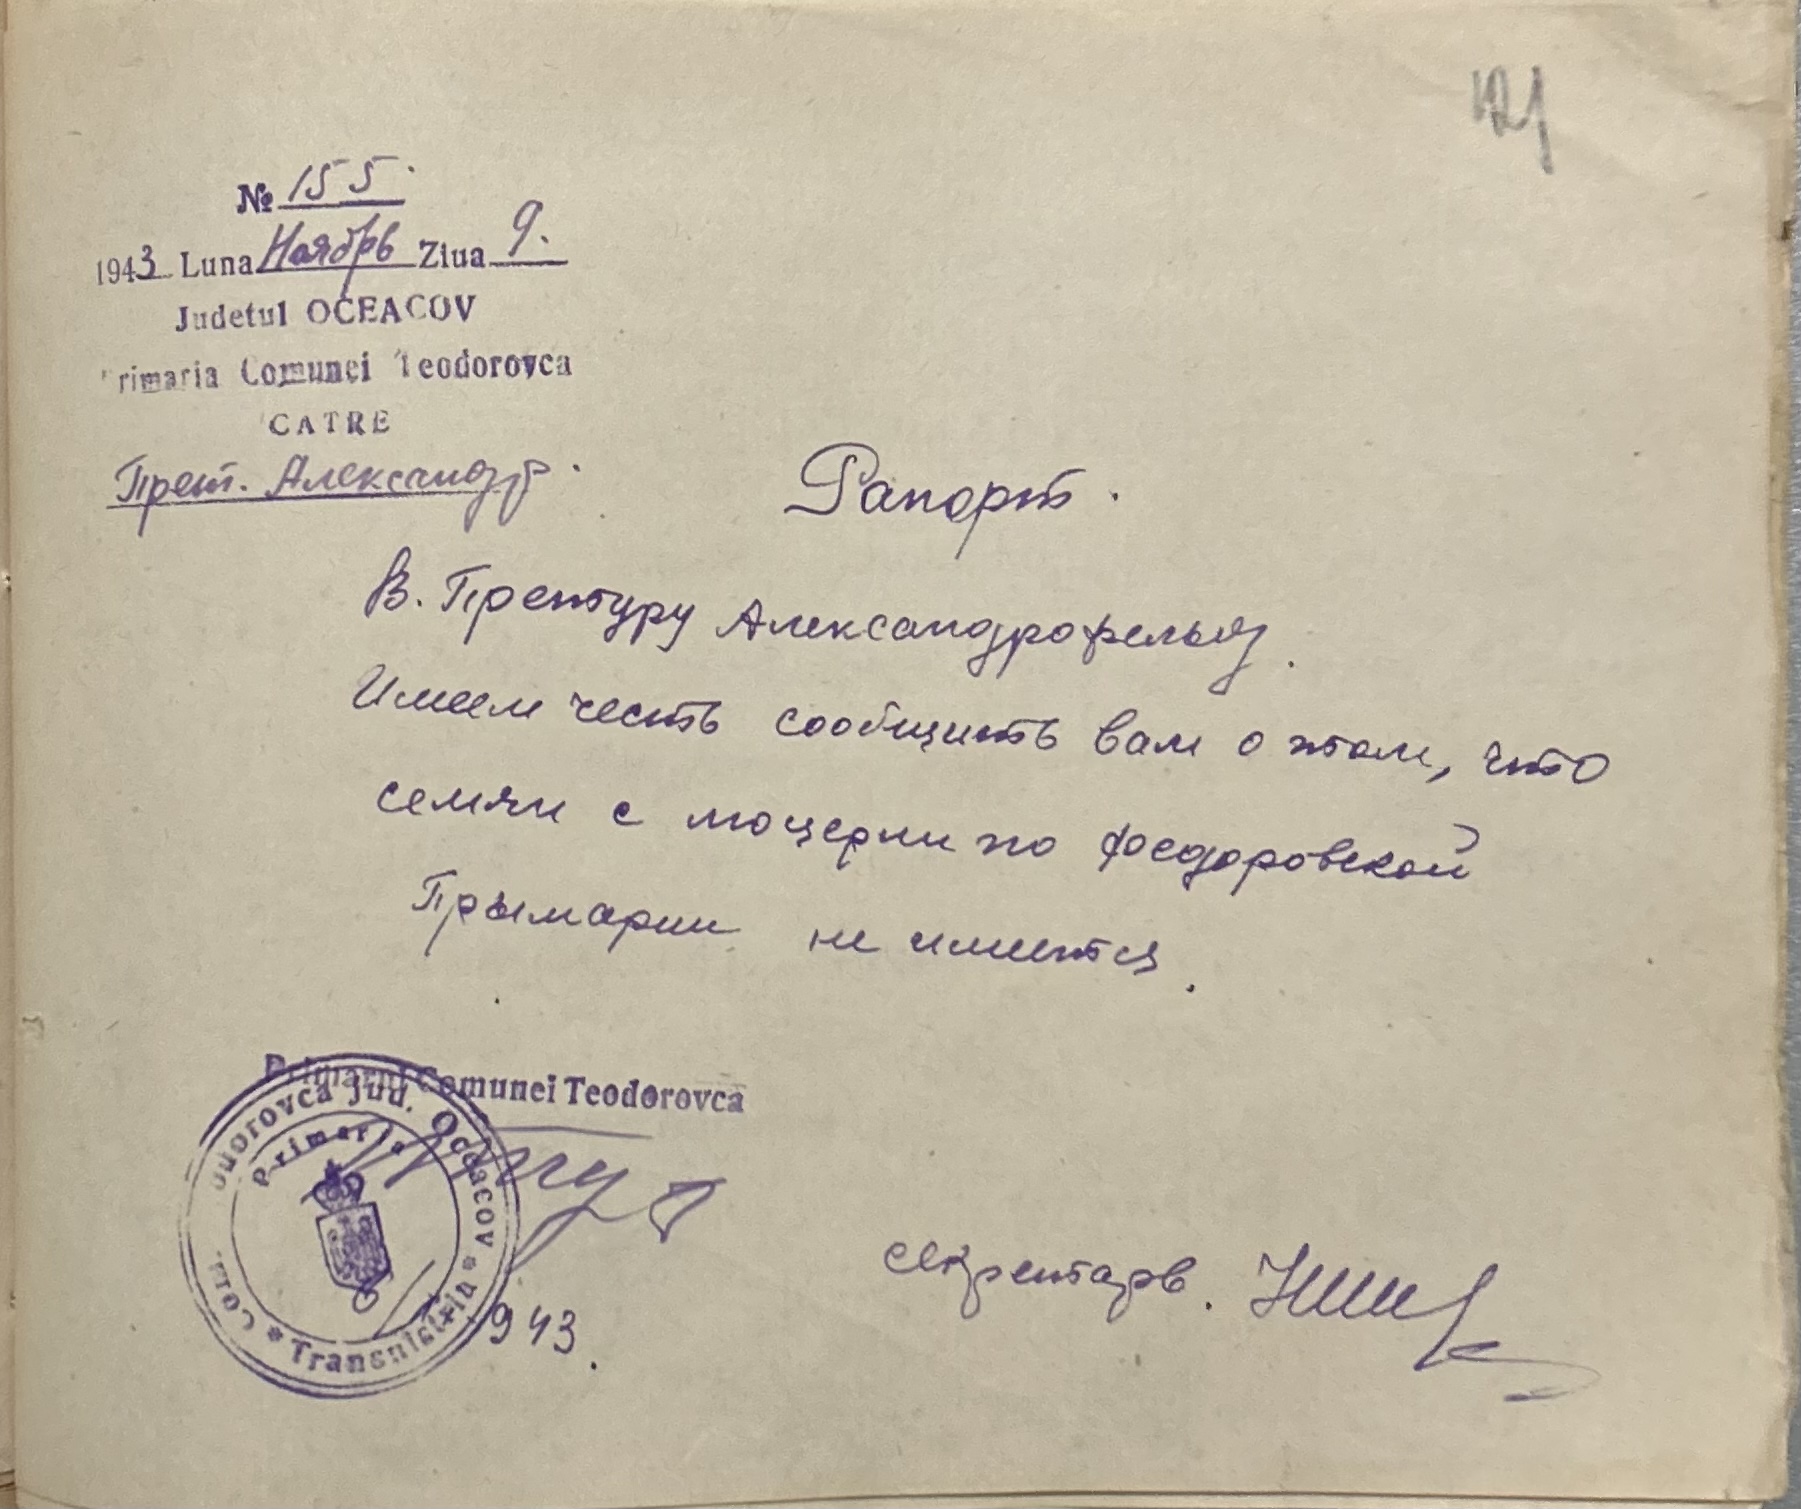 121
№ 155.
1943 Luna Ноябрь Ziua 9.
Judetul OCEACOV
Primaria Comunei Teodorovca
CATRE
Прет. Александр.
Рапорт.
В. Претуру Александрофельд.
Имеем честь сообщить вам о том, что
семян с люцерни по Феодоровской
Прымарии не имеется.
Primarul Comunei Teodorovca
Com. Teodorovca Jud. Oceacov * Transnistria *
Primaria
943.
секретарь.